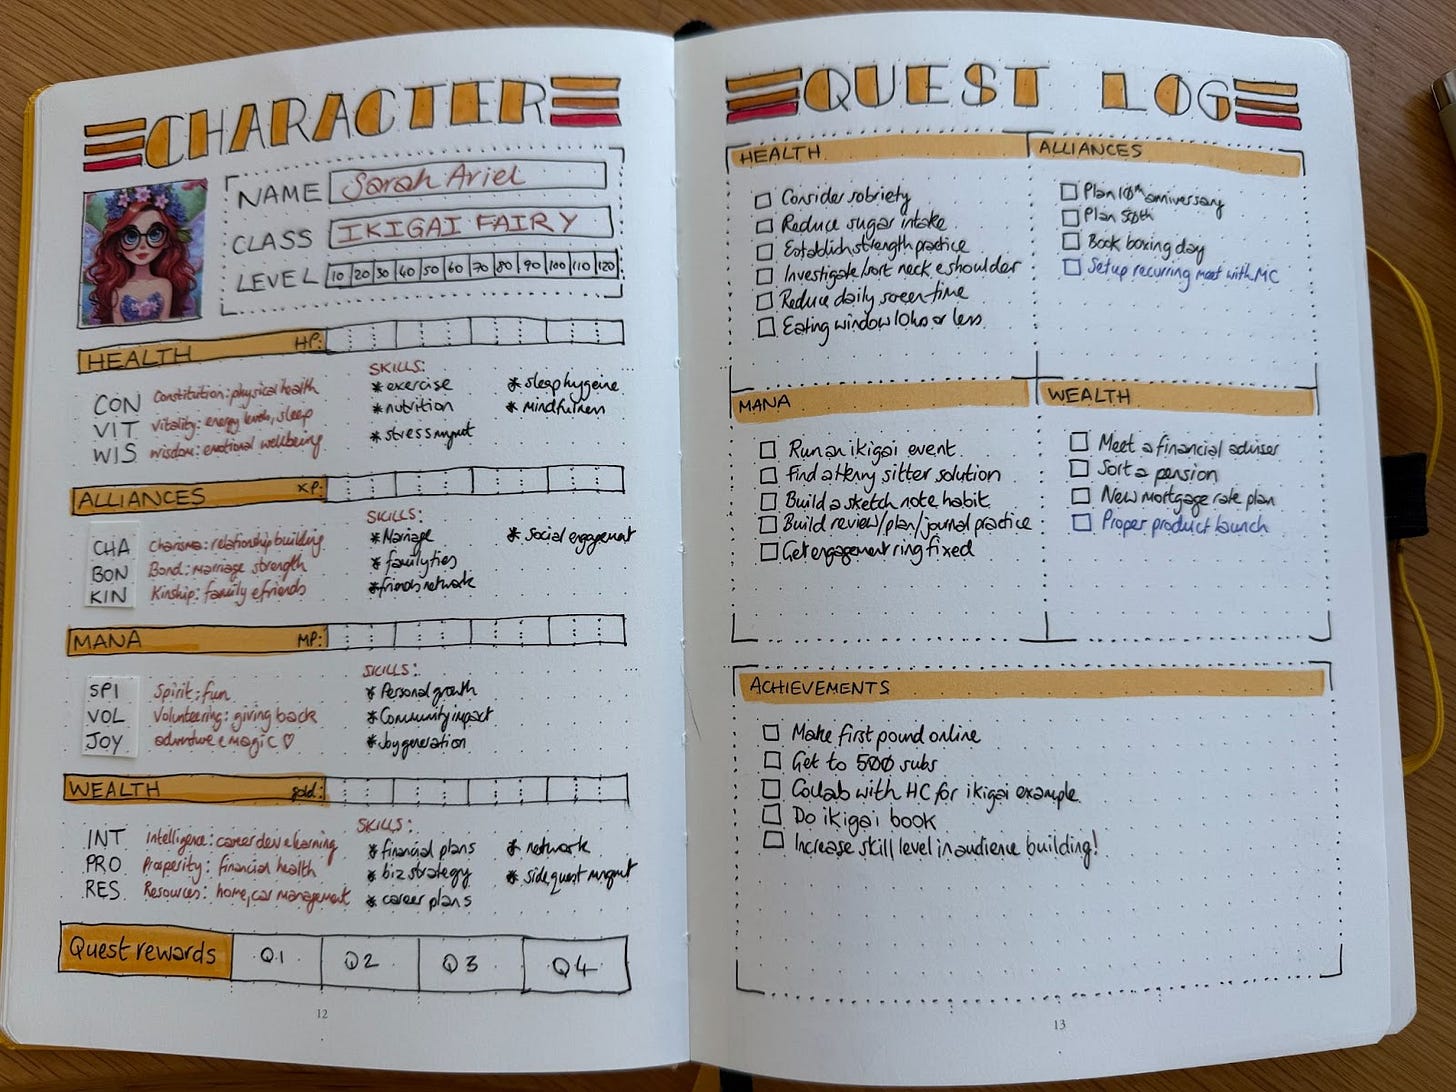 CHARACTER
NAME Sarah Ariel
CLASS IKIGAI FAIRY
LEVEL 10 20 30 40 50 60 70 80 90 100 110 120
HEALTH HP:
CON Constitution: physical health
VIT Vitality: energy levels, sleep
WIS Wisdom: emotional wellbeing
SKILLS:
* exercise * sleep hygeine
* nutrition * mindfulness
* stress mgmt
ALLIANCES XP:
CHA Charisma: relationship building
BON Bond: marriage strength
KIN Kinship: family & friends
SKILLS:
* Marriage * social engagement
* family ties
* friends network
MANA MP:
SPI Spirit: fun
VOL Volunteering: giving back
JOY adventure & magic ♡
SKILLS:
* Personal growth
* Community impact
* Joy generation
WEALTH gold:
INT Intelligence: career dev & learning
PRO Prosperity: financial health
RES Resources: home, car management
SKILLS:
* financial plans * network
* biz strategy * side quest mngmt
* career plans
Quest rewards Q1 Q2 Q3 Q4
12
QUEST LOG
HEALTH
Consider sobriety
Reduce sugar intake
Establish strength practice
Investigate/sort neck & shoulder
Reduce daily screen-time
Eating window 10hrs or less
ALLIANCES
Plan 10th anniversary
Plan 50th
Book boxing day
Set up recurring meet with MC
MANA
Run an ikigai event
Find a Henry sitter solution
Build a sketch note habit
Build review/plan/journal practice
Get engagement ring fixed
WEALTH
Meet a financial adviser
Sort a pension
New mortgage rate plan
Proper product launch
ACHIEVEMENTS
Make first pound online
Get to 500 subs
Collab with HC for ikigai example
Do ikigai book
Increase skill level in audience building!
13